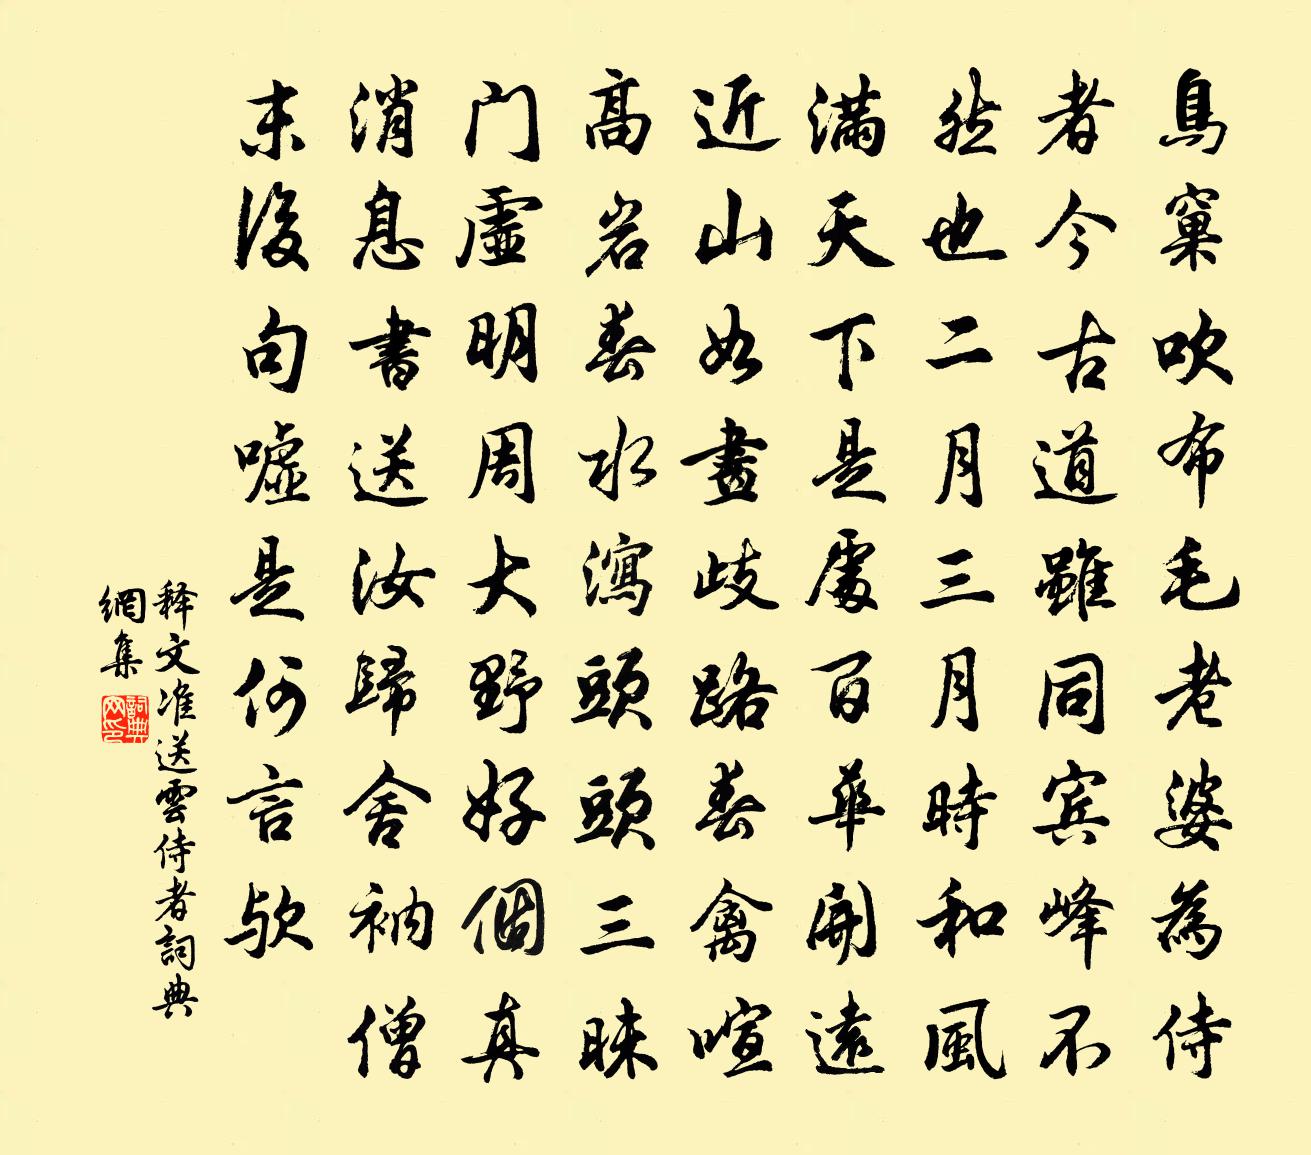 鳥窠吹布毛老婆為侍
者今古道雖同宾峰不
然也二月三月時和風
滿天下是處百華開遠
近山如畫歧路春禽喧
高岩春水瀉頭頭三昧
门虛明周大野好個真
消息書送汝歸舍衲僧
末後句噓是何言歟
释文准送雲侍者詞典
網集
詞典
网印